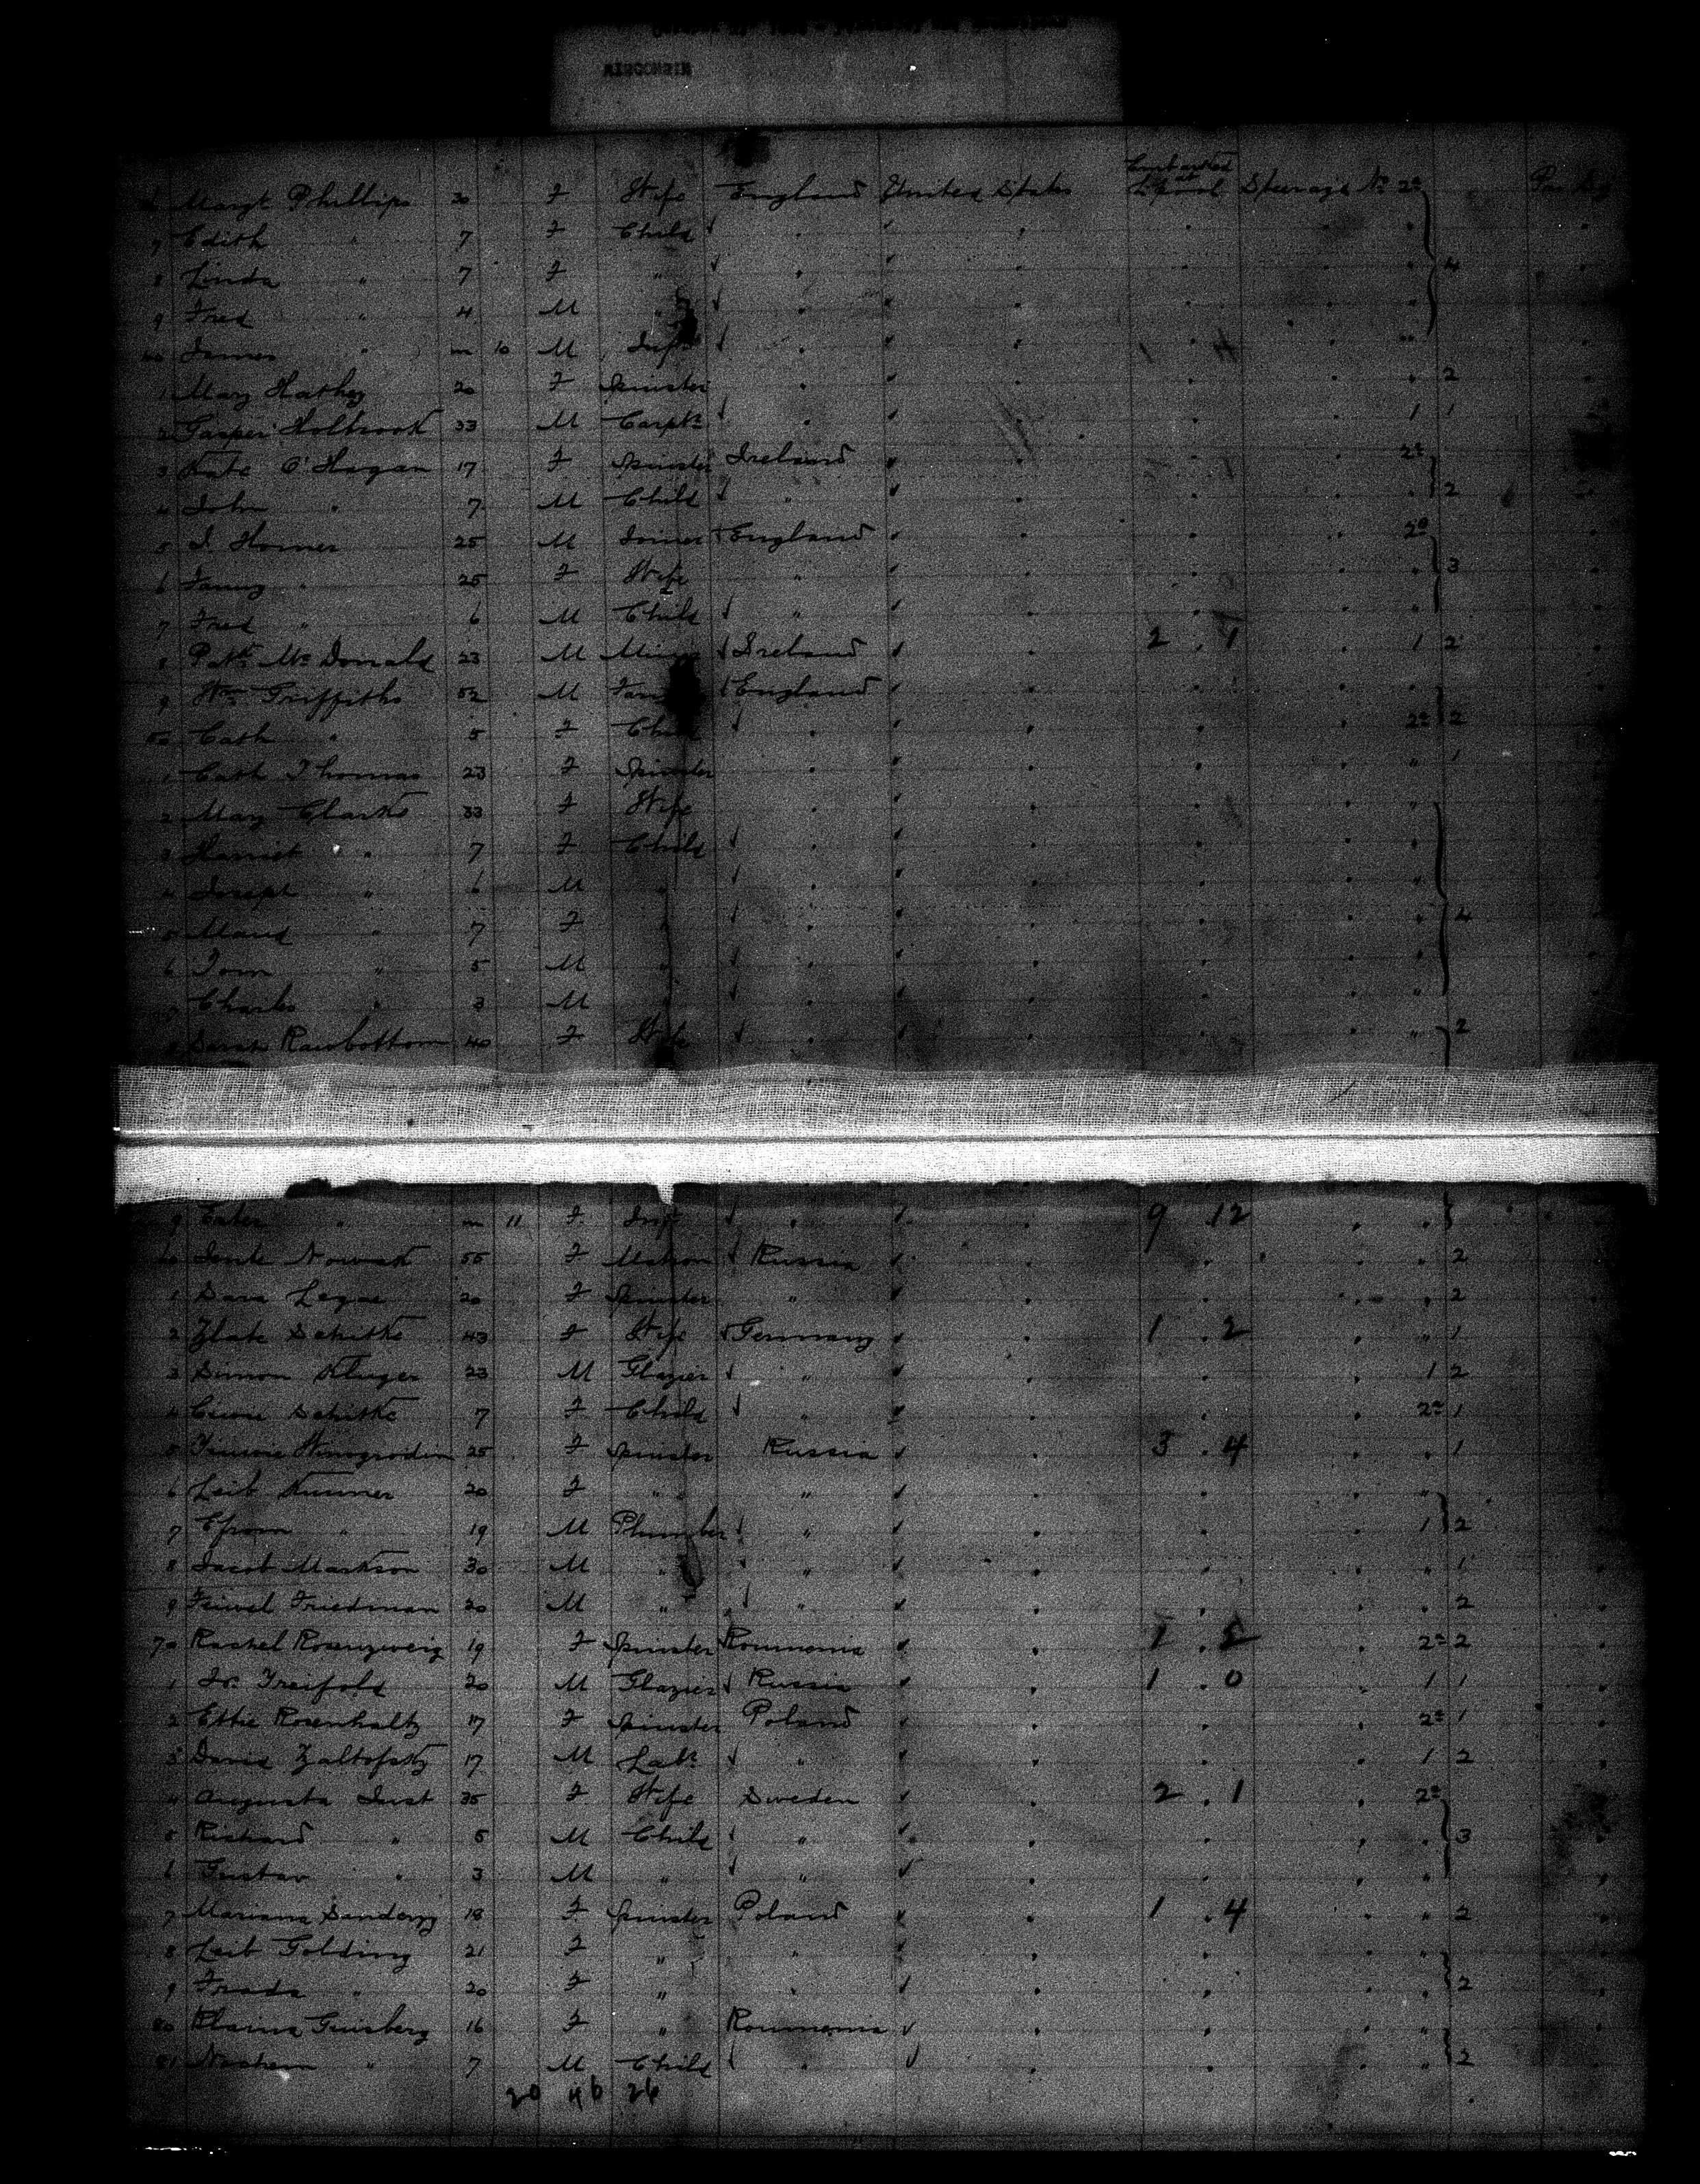 WISCONSIN
Embarked at
Margt Phillips 30 F Wife England United States L'pool Steerage No 2a
7 Edith " 7 F Child
8 Linda " 7 F " 4
9 Fred " 4 M "
40 James " m 10 M Inft
1 Mary Hathey 20 F Spinster 2
2 Gasper Holbrook 33 M Carptr 1 1
3 Kate O'Hagan 17 F Spinster Ireland 2a
4 John " 7 M Child " 2
5 J. Horner 25 M Joiner England 2a
6 Fanny " 25 F Wife " 3
7 Fred " 6 M Child "
8 Patk McDonald 23 M Miner Ireland 2 . 1 1 2
9 Wm Griffiths 52 M England
50 Cath " 5 F Child 2a 2
1 Cath Thomas 23 F Spinster " 1
2 Mary Clarke 33 F Wife "
3 Harriet " 7 F Child "
4 Joseph " 6 M " "
5 Maud " 7 F " 4
6 Tom " 5 M " "
7 Charles " 3 M "
8 Sarah Rawbottom 40 F Wife " 2
9 Ester " m 11 F Inft " 9 . 12
60 Nowak 55 F Matron Russia 2
1 Sara 20 F Spinster " 2
2 Zlate Schitke 43 F Wife Germany 1 . 2 " 1
3 Simon Kluger 23 M Glazier " 1 2
4 Schitke 7 F Child " 2a 1
5 25 F Spinster Russia 3 . 4 " 1
6 Leib Kunner 20 F " " "
7 Efrom " 19 M Plumber " 1 2
8 Jacob Markson 30 M " " 1
9 Feiwel Friedman 20 M " " 2
70 Rachel Rosenzweig 19 F Spinster Roumania 1 . 2a 2
1 Treifold 20 M Glazier Russia 1 . 0 1 1
2 Ettie Rosenhaltz 17 F Spinster Poland 2a 1
3 David Zaltofsky 17 M Labr " 1 2
4 Augusta Just 35 F Wife Sweden 2 . 1 2a
5 Richard " 5 M Child " 3
6 Gustav " 3 M " "
7 Mariana 18 F Spinster Poland 1 . 4 " 2
8 Leib Golding 21 F " " "
9 Frada " 20 F " " 2
80 Ginsberg 16 F " Roumania "
81 " 7 M Child " 2
20 46 26